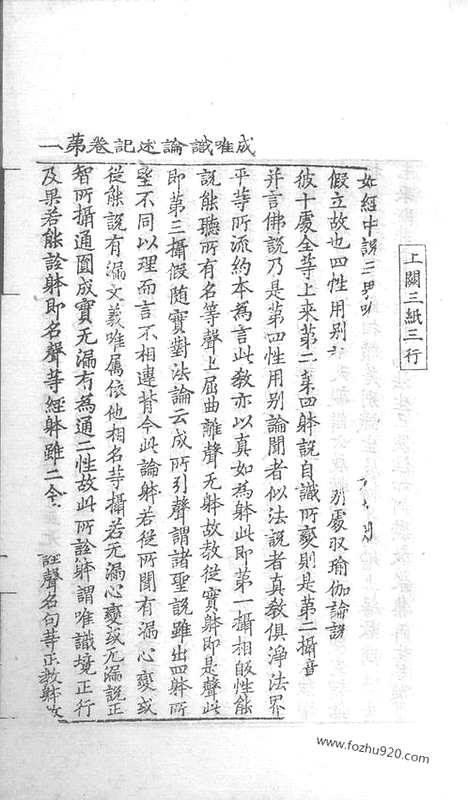 成唯識論述記卷苐一
上闕三紙三行
如經中說三界
假立故也四性用別
別處㕛瑜伽論說
彼十處全等上來苐二苐四躰說自識所變則是苐二攝音
并言佛說乃是苐四性用別論聞者似法說者真教俱淨法界
平等所流約本為言此教亦以真如為躰此即苐一攝相皈性能
說能聽所有名等聲上屈曲離聲无躰故教從實躰即是聲此
即苐三攝假隨實對法論云成所引聲謂諸聖說雖出四躰所
望不同以理而言不相違背今此論躰若從所聞有漏心變或
從能說有漏文義唯属依他相名等攝若无漏心變或无漏說正
智所攝通圓成實无漏有為通二性故此所詮躰謂唯識境正行
及果若能詮躰即名聲等經躰雖二今
詮聲名句等正教躰
www.fozhu920.com